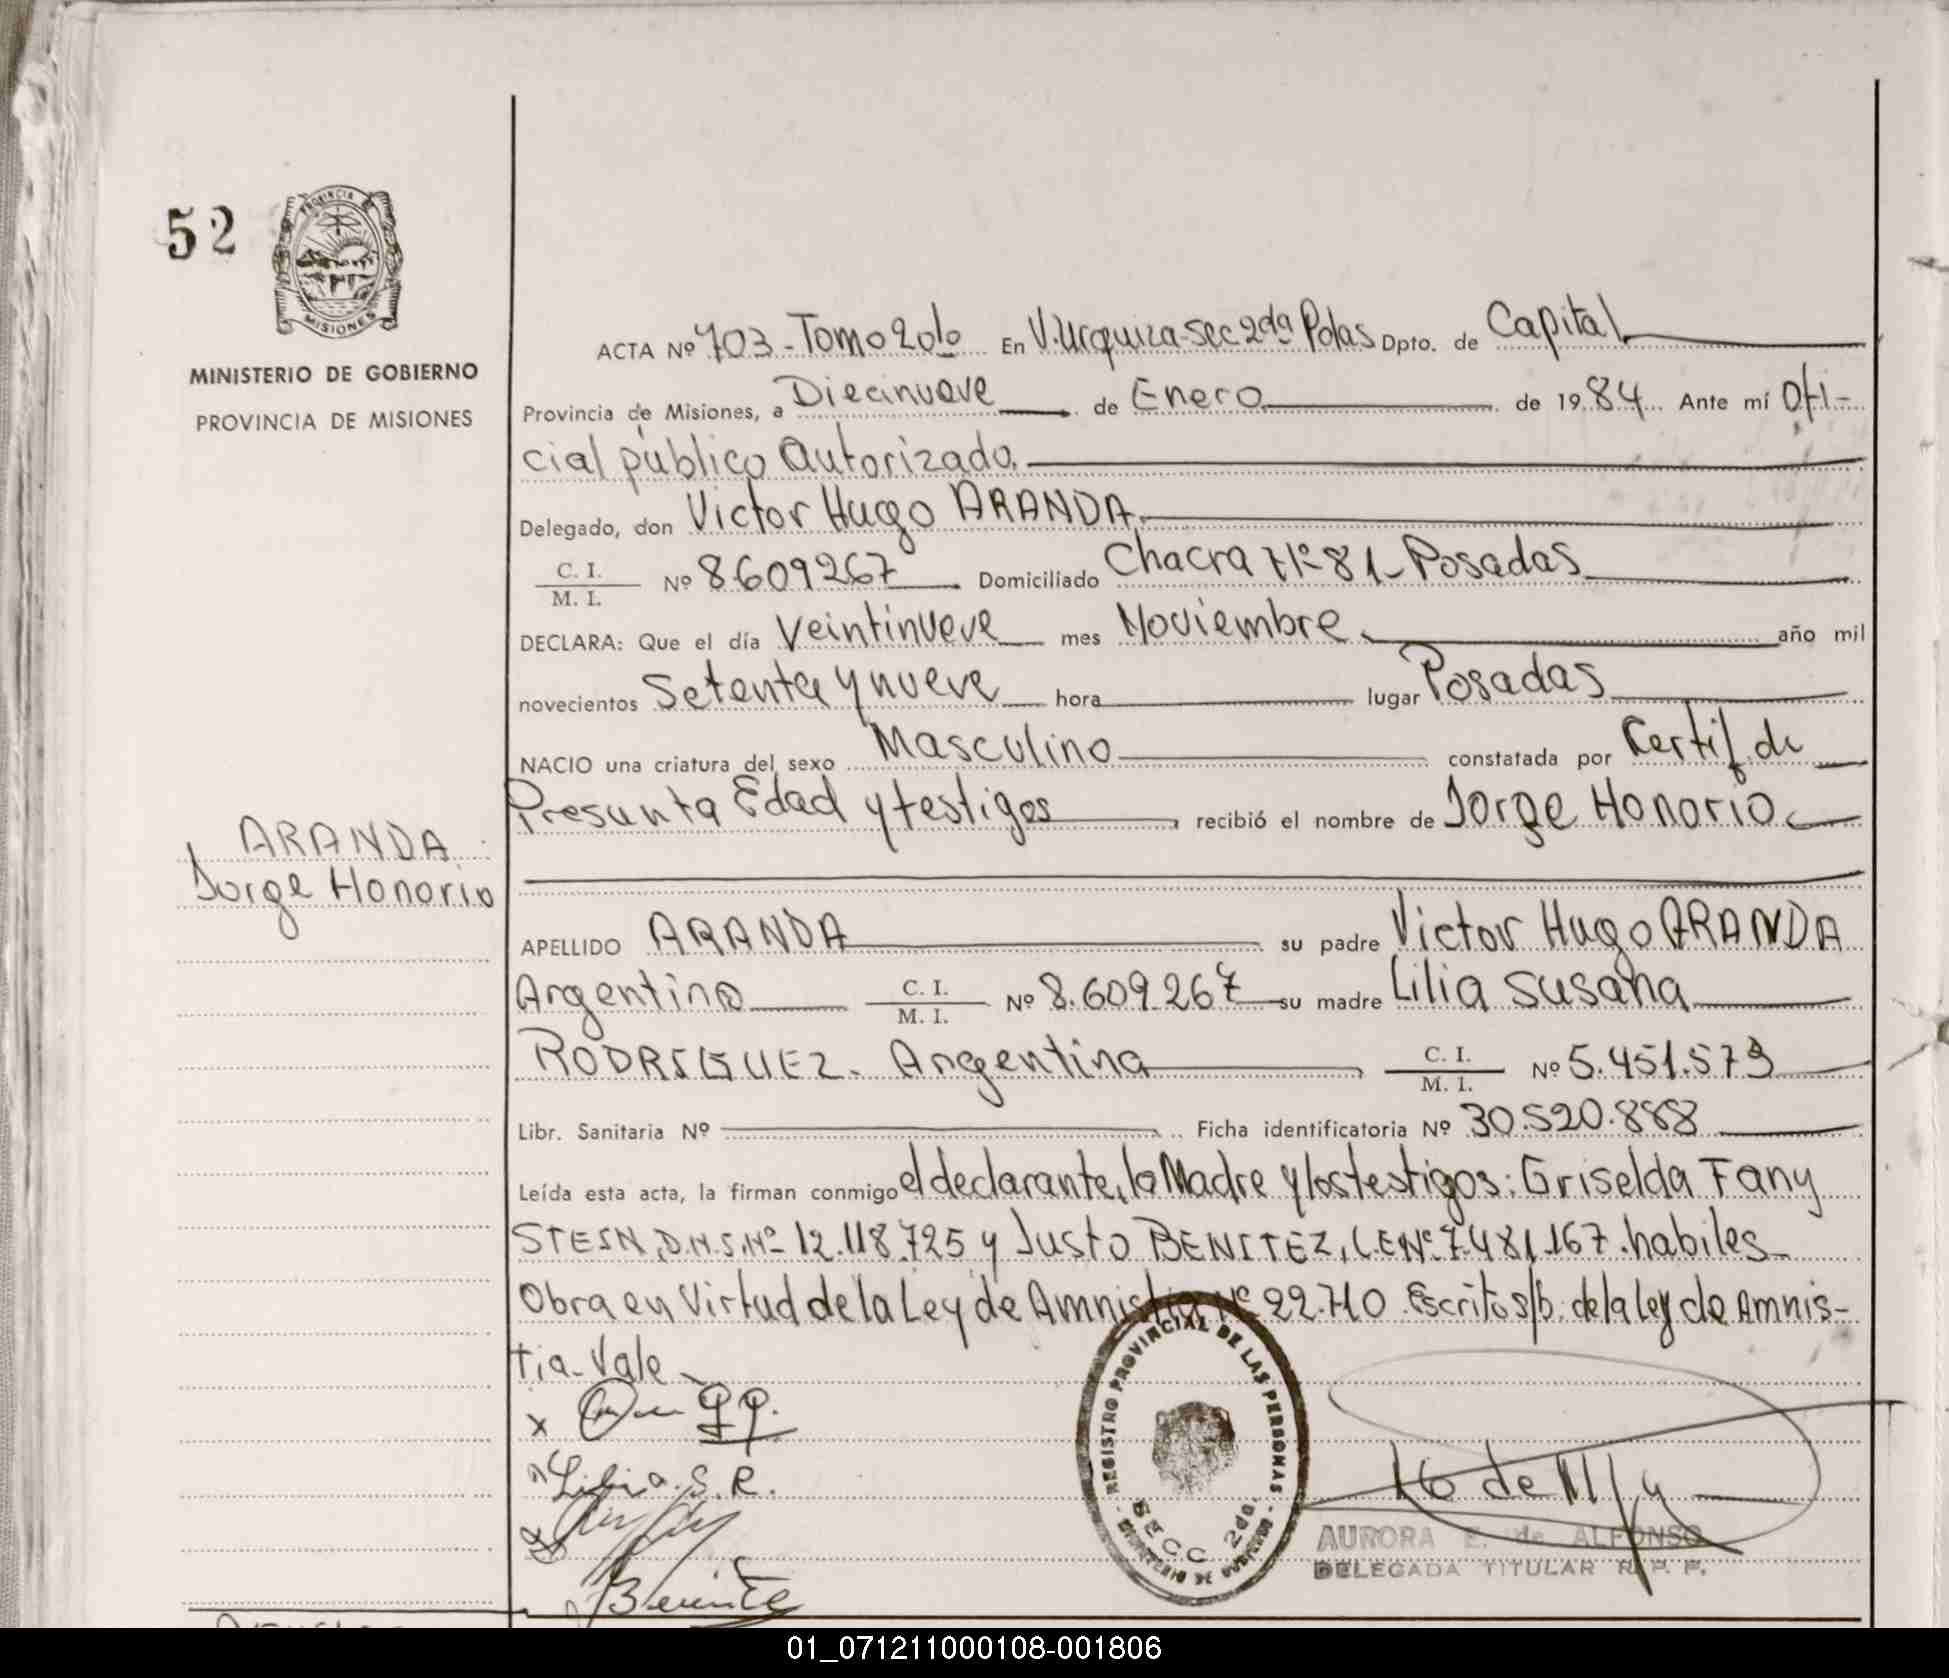 52
PROVINCIA DE
MISIONES
MINISTERIO DE GOBIERNO
PROVINCIA DE MISIONES
ACTA Nº 703-Tomo 2do En V.Urquiza-Sec 2da Pdas Dpto. de Capital
Provincia de Misiones, a Diecinueve de Enero de 1984 Ante mí Ofi-
cial público Autorizado.
Delegado, don Victor Hugo ARANDA
C. I.
M. I. Nº 8.609267 Domiciliado Chacra Nº 81-Posadas
DECLARA: Que el día Veintinueve mes Noviembre año mil
novecientos Setenta y nueve hora lugar Posadas
NACIO una criatura del sexo Masculino constatada por Certif de
Presunta Edad y testigos, recibió el nombre de Jorge Honorio
ARANDA
Jorge Honorio
APELLIDO ARANDA su padre Victor Hugo ARANDA
Argentino C. I.
M. I. Nº 8.609.267 su madre Lilia Susana
RODRIGUEZ. Argentina, C. I.
M. I. Nº 5.451.573
Libr. Sanitaria Nº Ficha identificatoria Nº 30.520.888
Leída esta acta, la firman conmigo el declarante, la Madre y los testigos: Griselda Fany
STEIN, D.N.I.Nº 12.118.725 y Justo BENITEZ, L.E Nº 7.481.167. habiles
Obra en Virtud de la Ley de Amnistia Nº 22.710 Escrito s/b. de la Ley de Amnis-
tia-Vale
x
Lilia S. R.
Benite
REGISTRO PROVINCIAL DE LAS PERSONAS
SECC 2da.
AURORA E. de ALFONSO
DELEGADA TITULAR R. P. P.
01_071211000108-001806